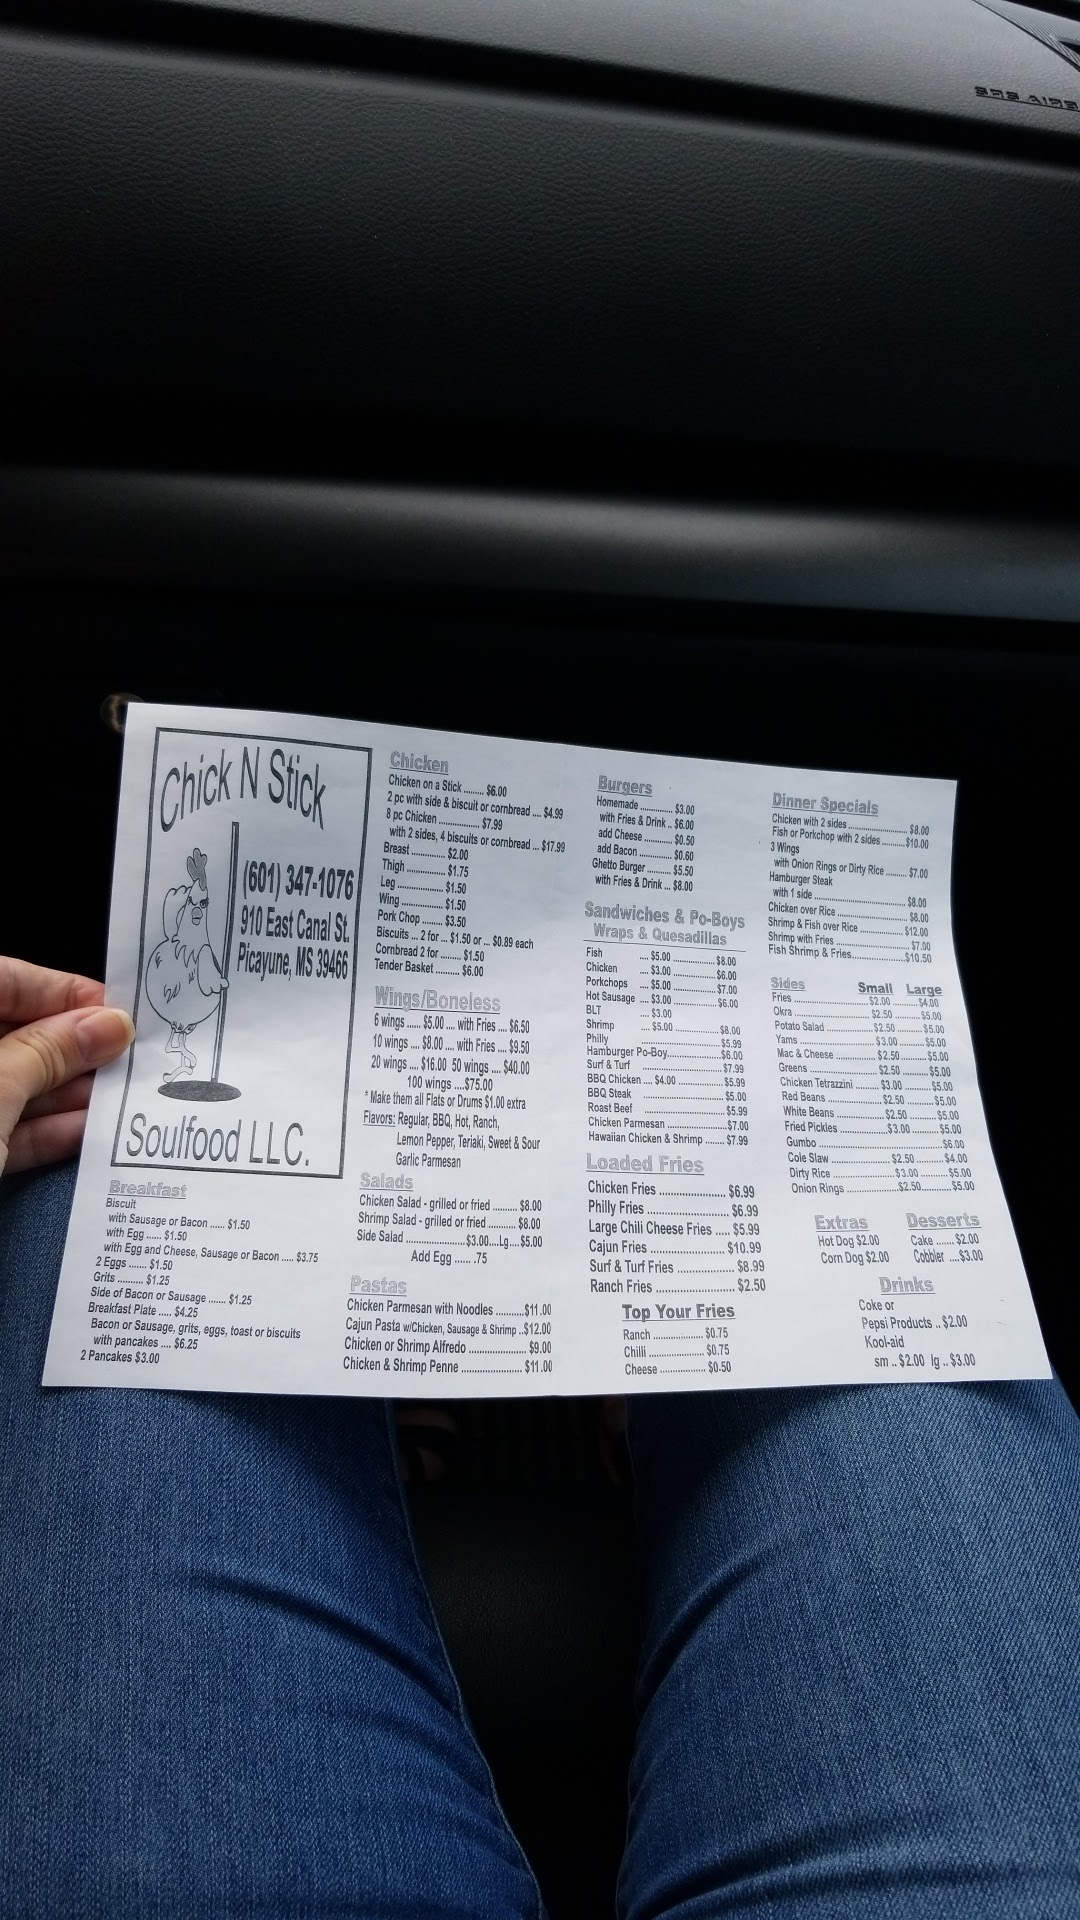 SRS AIRB
Chick N Stick
(601) 347-1076
910 East Canal St.
Picayune, MS 39466
Soulfood LLC.
Breakfast
Biscuit
with Sausage or Bacon ..... $1.50
with Egg ..... $1.50
with Egg and Cheese, Sausage or Bacon ..... $3.75
2 Eggs ....... $1.50
Grits .......... $1.25
Side of Bacon or Sausage ....... $1.25
Breakfast Plate ..... $4.25
Bacon or Sausage, grits, eggs, toast or biscuits
with pancakes .... $6.25
2 Pancakes $3.00
Chicken
Chicken on a Stick ........ $6.00
2 pc with side & biscuit or cornbread .... $4.99
8 pc Chicken ................ $7.99
with 2 sides, 4 biscuits or cornbread ... $17.99
Breast ............. $2.00
Thigh ............... $1.75
Leg .................. $1.50
Wing ................ $1.50
Pork Chop ....... $3.50
Biscuits ... 2 for ... $1.50 or ... $0.89 each
Cornbread 2 for ........ $1.50
Tender Basket ......... $6.00
Wings/Boneless
6 wings ..... $5.00 .... with Fries .... $6.50
10 wings .... $8.00 .... with Fries .... $9.50
20 wings .... $16.00 50 wings .... $40.00
100 wings ....$75.00
* Make them all Flats or Drums $1.00 extra
Flavors: Regular, BBQ, Hot, Ranch,
Lemon Pepper, Teriaki, Sweet & Sour
Garlic Parmesan
Salads
Chicken Salad - grilled or fried ......... $8.00
Shrimp Salad - grilled or fried .......... $8.00
Side Salad ......................$3.00....Lg....$5.00
Add Egg ...... .75
Pastas
Chicken Parmesan with Noodles ..........$11.00
Cajun Pasta w/Chicken, Sausage & Shrimp ..$12.00
Chicken or Shrimp Alfredo .................... $9.00
Chicken & Shrimp Penne ..................... $11.00
Burgers
Homemade ............ $3.00
with Fries & Drink .. $6.00
add Cheese ............ $0.50
add Bacon .............. $0.60
Ghetto Burger .......... $5.50
with Fries & Drink ... $8.00
Sandwiches & Po-Boys
Wraps & Quesadillas
Fish .... $5.00 .................... $8.00
Chicken .... $3.00 .................... $6.00
Porkchops .... $5.00 .................... $7.00
Hot Sausage .... $3.00 .................... $6.00
BLT .... $3.00
Shrimp .... $5.00 .................... $8.00
Philly .................... $5.99
Hamburger Po-Boy.................... $6.00
Surf & Turf .................... $7.99
BBQ Chicken .... $4.00 .................... $5.99
BBQ Steak .................... $5.00
Roast Beef .................... $5.99
Chicken Parmesan ....................$7.00
Hawaiian Chicken & Shrimp ....... $7.99
Loaded Fries
Chicken Fries ....................... $6.99
Philly Fries ............................ $6.99
Large Chili Cheese Fries ..... $5.99
Cajun Fries .......................... $10.99
Surf & Turf Fries .................. $8.99
Ranch Fries .......................... $2.50
Top Your Fries
Ranch ................... $0.75
Chilli ..................... $0.75
Cheese ................ $0.50
Dinner Specials
Chicken with 2 sides .................... $8.00
Fish or Porkchop with 2 sides ......... $10.00
3 Wings
with Onion Rings or Dirty Rice ........ $7.00
Hamburger Steak
with 1 side .................... $8.00
Chicken over Rice .................... $8.00
Shrimp & Fish over Rice ............... $12.00
Shrimp with Fries .................... $7.00
Fish Shrimp & Fries.................... $10.50
Sides Small Large
Fries .................... $2.00 ......... $4.00
Okra .................... $2.50 ......... $5.00
Potato Salad ............... $2.50 ......... $5.00
Yams .................... $3.00 ......... $5.00
Mac & Cheese ............. $2.50 ......... $5.00
Greens .................... $2.50 ......... $5.00
Chicken Tetrazzini ........ $3.00 ......... $5.00
Red Beans .................. $2.50 ......... $5.00
White Beans ............... $2.50 ......... $5.00
Fried Pickles ................$3.00 ......... $5.00
Gumbo .................... $6.00
Cole Slaw .................... $2.50 ......... $4.00
Dirty Rice .................... $3.00 ......... $5.00
Onion Rings .................... $2.50 ......... $5.00
Extras
Hot Dog $2.00
Corn Dog $2.00
Desserts
Cake ...... $2.00
Cobbler ....$3.00
Drinks
Coke or
Pepsi Products .. $2.00
Kool-aid
sm .. $2.00 lg .. $3.00